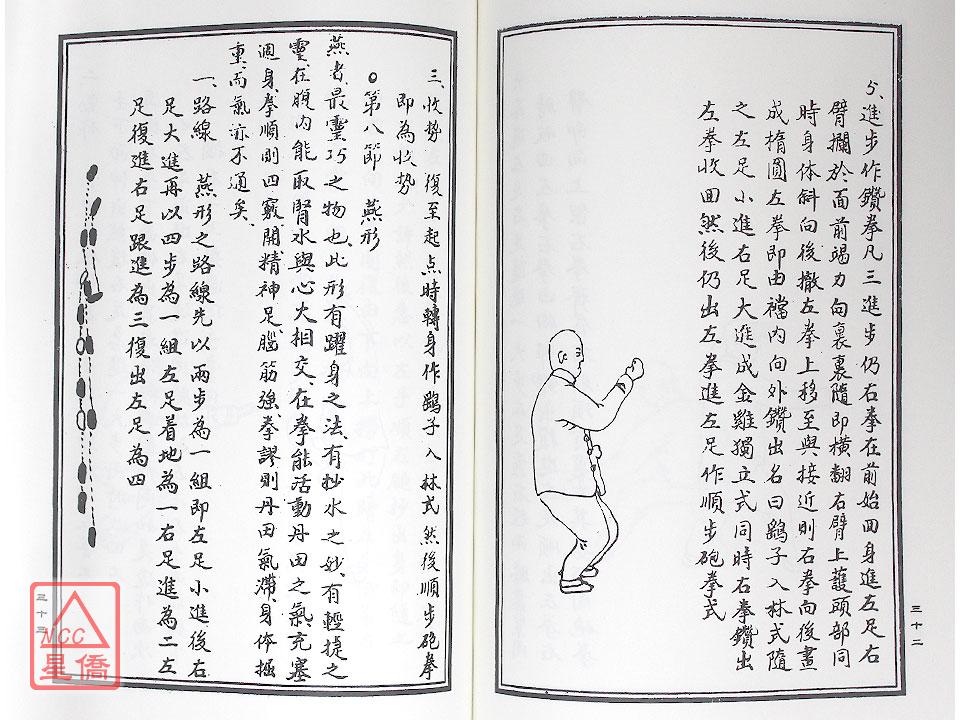 5、進步作鑽拳凡三進步仍右拳在前始回身進左足右
臂攔於面前竭力向裏裹隨即橫翻右臂上護頭部同
時身体斜向後撤左拳上移至與接近則右拳向後畫
成橢圓左拳即由襠內向外鑽出名曰鷂子入林式隨
之左足小進右足大進成金雞獨立式同時右拳鑽出
左拳收回然後仍出左拳進左足作順步砲拳式
三十二
三、收勢 復至起点時轉身作鷂子入林式然後順步砲拳
即為收勢
○第八節 燕形
燕者、最靈巧之物也、此形有躍身之法、有抄水之妙、有輕捷之
靈、在腹內能取腎水與心火相交、在拳能活動丹田之氣充塞
週身、拳順則四竅開、精神足、腦筋強、拳謬則丹田氣滯、身体拙
重、而氣亦不通矣、
一、路線 燕形之路線先以兩步為一組即左足小進後右
足大進再以四步為一組左足着地為一右足進為二左
足復進右足跟進為三復出左足為四
三十三
NCC
星僑